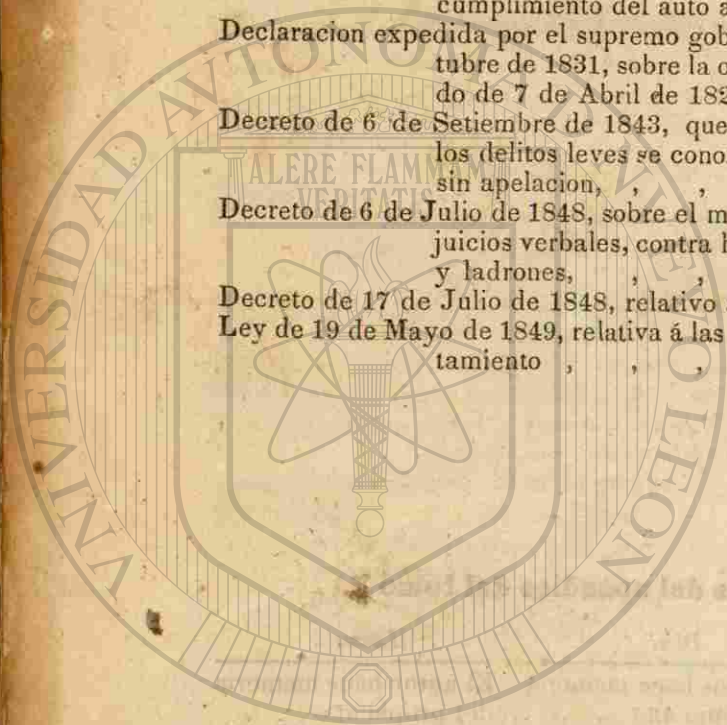 cumplimiento del auto a
Declaracion expedida por el supremo gob
tubre de 1831, sobre la o
do de 7 de Abril de 182
Decreto de 6 de Setiembre de 1843, que
los delitos leves se cono
sin apelacion, , ,
Decreto de 6 de Julio de 1848, sobre el m
juicios verbales, contra l
y ladrones, , ,
Decreto de 17 de Julio de 1848, relativo
Ley de 19 de Mayo de 1849, relativa á las
tamiento , , ,
UNIVERSIDAD AVTONOMA DE NVEVO LEON
ALERE FLAMMAM
VERITATIS